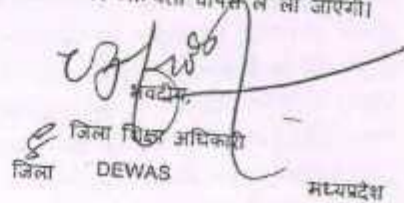 वापस ले ली जाएगी।
भवदीय,
जिला शिक्षा अधिकारी
जिला DEWAS
मध्यप्रदेश